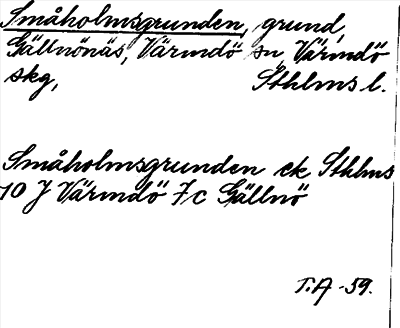 Småholmsgrunden, grund,
Gällnönäs, Värmdö sn, Värmdö
skg, Sthlms l.
Småholmsgrunden ek Sthlms
10 J Värmdö 7c Gällnö
T.A -59.